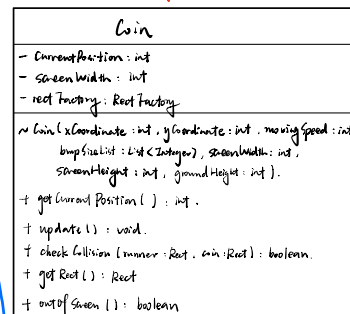 Coin
- CurrentPosition : int
- screenWidth : int
- rectFactory : RectFactory
~ Coin ( xCoordinate : int, yCoordinate : int, movingSpeed : int
bmpSizeList : List<Integer>, screenWidth : int,
screenHeight : int, groundHeight : int ).
+ getCurrentPosition ( ) : int .
+ update ( ) : void.
+ checkCollision ( runner : Rect, coin : Rect ) : boolean.
+ getRect ( ) : Rect
+ outOfScreen ( ) : boolean